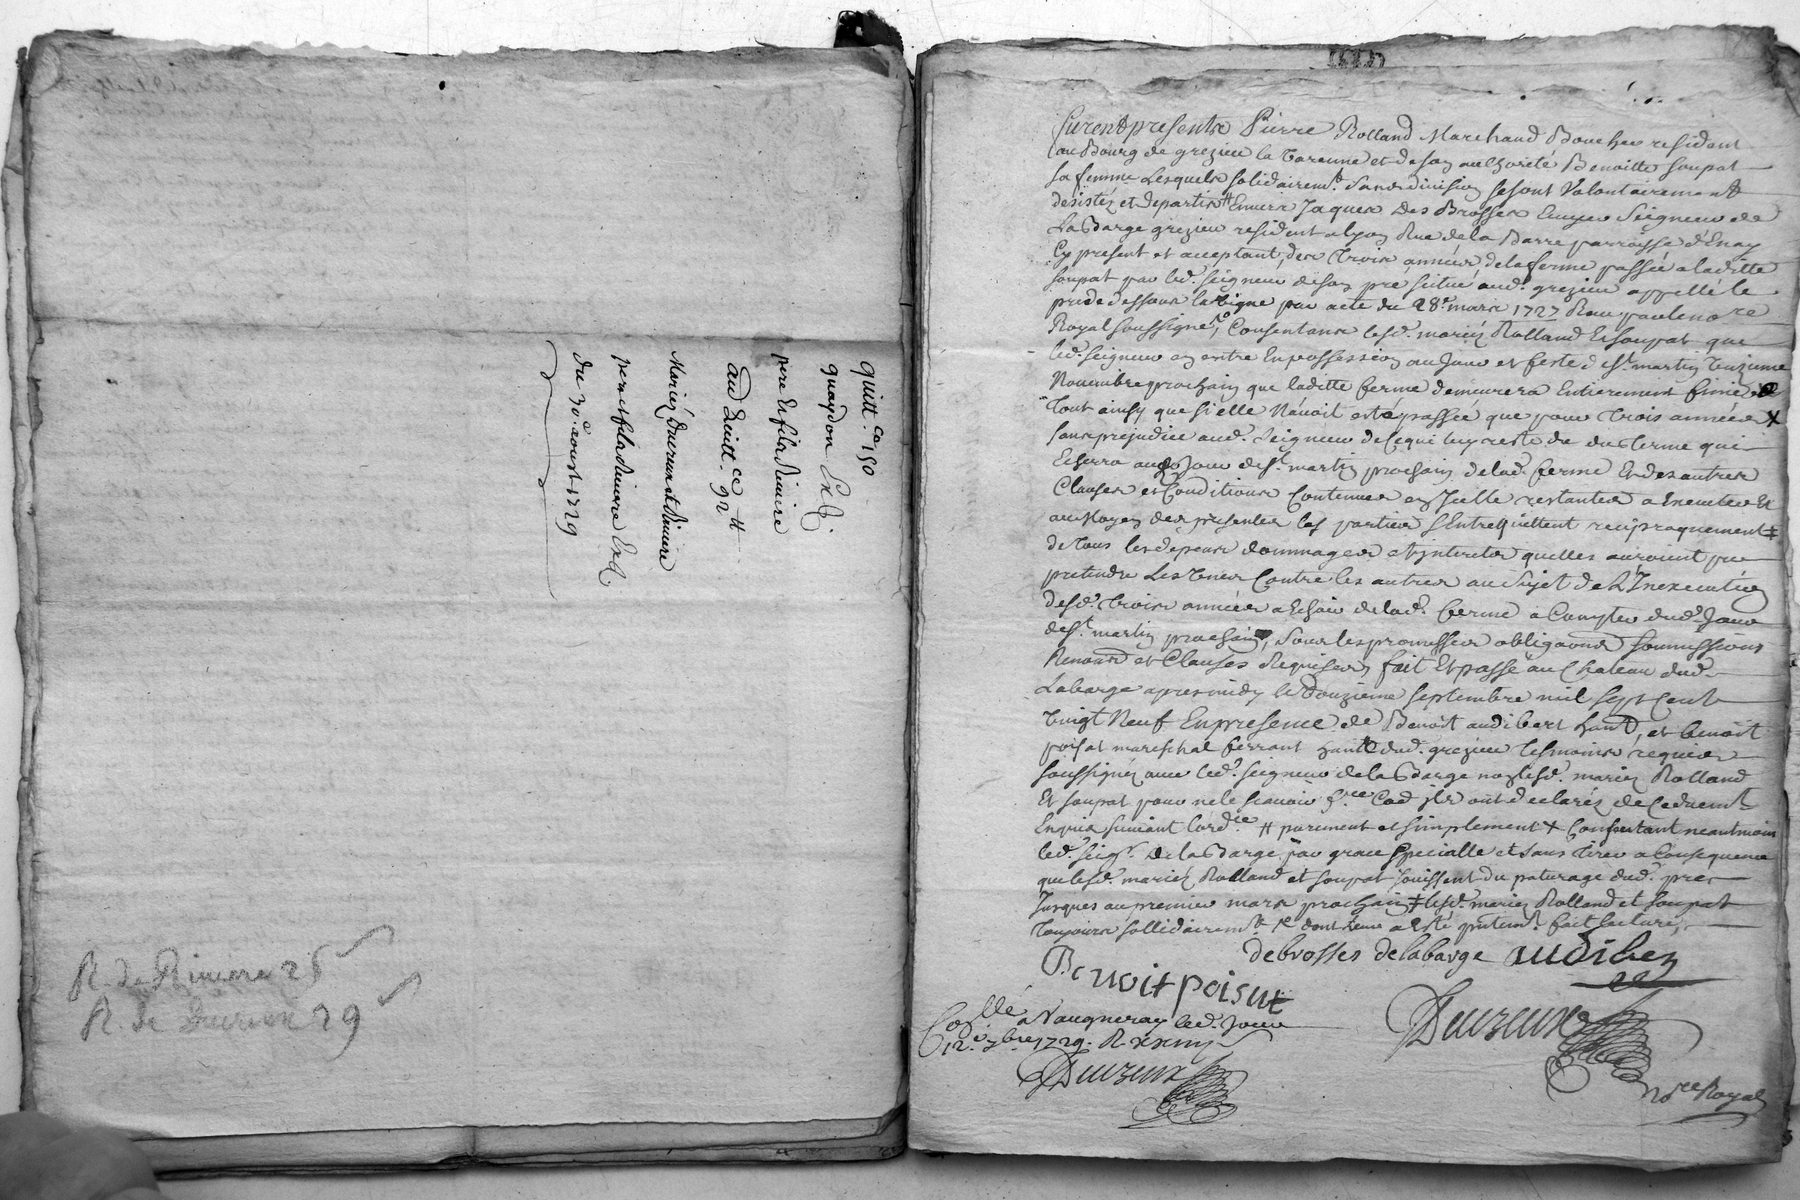 quitt.ce 150
quaydon Exp.
pere Et fils Riviere
And Quitt.ce 92 ₶
Mariez Ducreux et Riviere
pere et fils Riviere Exp.
du 30.e aoust 1729
R. de Riviere 25
R. de Ducreux 29
furent presents Pierre Rolland Marchand Boucher resident
au Bourg de grezieu la Varenne et de son authorité Benoitte Soupat
sa femme Lesquels solidairemt. sans division se sont Volontairement
desistéz et departis # Envers Jaques Des Brosses Ecuyer Seigneur de
La Barge grezieu resident a lyon Rue de la Barre parroisse d'Enay
Cy present et acceptant, des trois années de la ferme passée a laditte
Soupat par led. Seigneur de son pré scitué aud. grezieu appellé le
pré de dessous la Vigne par acte du 28e. mars 1727 Receu par le nore
Royal soussigné, Consentans lesd. mariéz Rolland Et Soupat que
led. Seigneur en entre En possession au Jour et feste de st. martin Unzieme
Novembre prochain que laditte ferme demeurera Entierement finie
Tout ainsy que si elle N'avoit esté passée que pour trois années X
sans prejudice aud. Seigneur de Ce qui luy reste du terme qui
Echerra audt Jour de st. martin prochain de lad. ferme Et des autres
Clauses et Conditions Contenues en Icelle restantes a Executer Et
au Moyen des presentes les parties S'Entrequittent reciproquement ‡
de tous les depens dommages et interets quelles auroient pu
pretendre Les Unes Contre les autres au Sujet de L'Inexecution
desd. Trois années a Echoir de lad. ferme a Compter dud. Jour
de st. martin prochain, sous les promesses obligaons soumissions
Renonns et Clauses Requises, fait Et passé au Chateau dud.
Labarge apres midy le douzieme septembre mil sept Cent
Vingt Neuf En presence de Benoit audibert hant, et benoit
poisat mareschal ferrant hant dud. grezieu tesmoins requis
soussignéz avec led. seigneur de la Barge non lesd. mariéz Rolland
Et Soupat pour ne le scavoir Cad ils ont declaréz de Ce duemt.
Enquis suivant l'ordce. # purement et simplement X Consentant neantmoins
led. Seigr. De la Barge par grace specialle et sans tirer a Consequence
que lesd. mariéz Rolland et Soupat jouissent du paturage dud. pré
Jusques au premier mars prochain ‡ lesd. mariéz Rolland et Soupat
Toujours sollidairemt. fait lecture,
debrosses delabarge audiber
Benoit poisat
Collé. a Vaugneray led. Jour
12.e 7bre 1729. R.
Ducreux
Ducreux
nore Royal